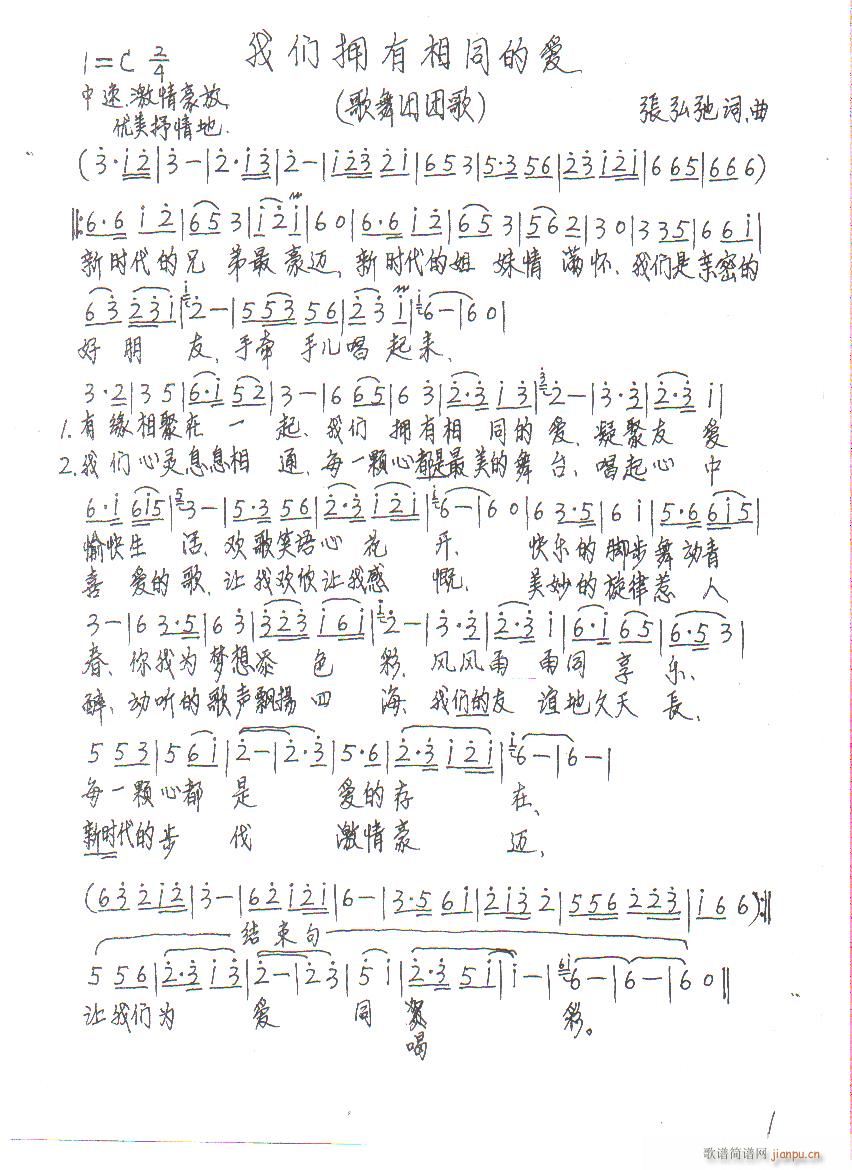 我们拥有相同的爱
1=C 2/4
(歌舞团团歌)
張弘弛词、曲
中速、激情豪放
优美抒情地.
(3·i2|3-|2·i3|2-|i23 2i|653|5·3 56|23i2i|6 65|666)
‖:6·6 i2|65 3|i 2 i|60|6·6 i2|65 3|56 2|30|335|66i|
新时代的兄 弟最 豪迈、新时代的姐 妹情 满怀、我们是亲密的
63 23i|2-|553 56|23 i|6-|60|
好朋 友、手牵 手儿唱 起来、
3·2|35|6·i 52|3-|6 65|6 3|2·3 i3|2-|3·3|2·3 i|
1.有缘相聚在 一 起、我们 拥有相 同的 爱、凝聚友 爱
2.我们心灵息息相 通、每一颗心都是最美的舞 台、唱起心 中
6·i 6i5|3-|5·3 56|2·3 i2i|6-|60|63·5|6i|5·6 6i5|
愉快生 活、欢歌笑语心 花 开、 快乐的脚步舞动青
喜 爱的歌、让我欢欣让我感 慨、 美妙的旋律惹 人
3-|63·5|63|323 i6i|2-|3·3|2·3 i|6·i 65|6·5 3|
春、你我为梦想添 色 彩、风风雨 雨同 享 乐、
醉、动听的歌声飘揚 四 海、我们的友 谊地久天 長、
5 53|5 6i|2-|2·3|5·6|2·3 i2i|6-|6-|
每一颗心都 是 爱的存 在、
新时代的步 伐 激情豪 迈、
(63 2i2|3-|62 i2i|6-|3·5 6i|2i3 2|556 223|i 66):‖
结束句
5 56|2·3 i3|2-|23|5 i|2·3 5i|i-|6-|6-|60‖
让我们为 爱 同 彩。
喝
1
歌谱简谱网 jianpu.cn